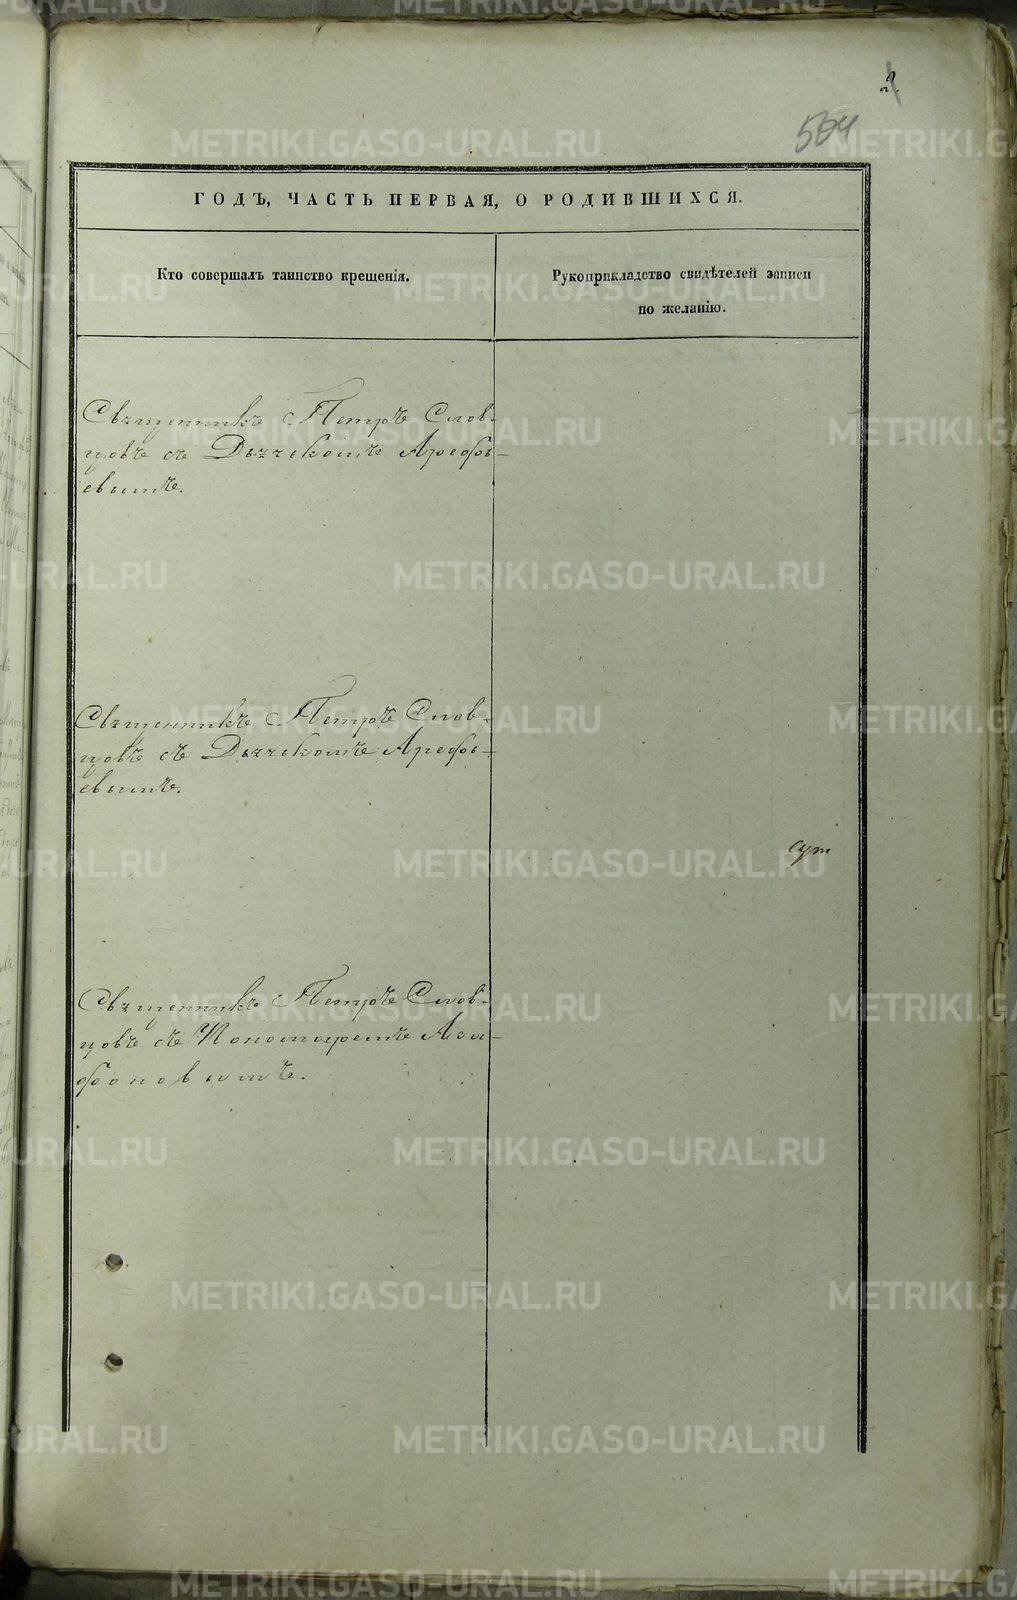 2.
564
ГОДЪ, ЧАСТЬ ПЕРВАЯ, О РОДИВШИХСЯ.
Кто совершалъ таинство крещенія.
Рукоприкладство свидѣтелей записи
по желанію.
Священникъ Петръ Слов-
цовъ съ Дьячкомъ Арефь-
евымъ.
Священникъ Петръ Слов-
цовъ съ Дьячкомъ Арефь-
евымъ.
Священникъ Петръ Слов-
цовъ съ Пономаремъ Ага-
фоновымъ.
METRIKI.GASO-URAL.RU